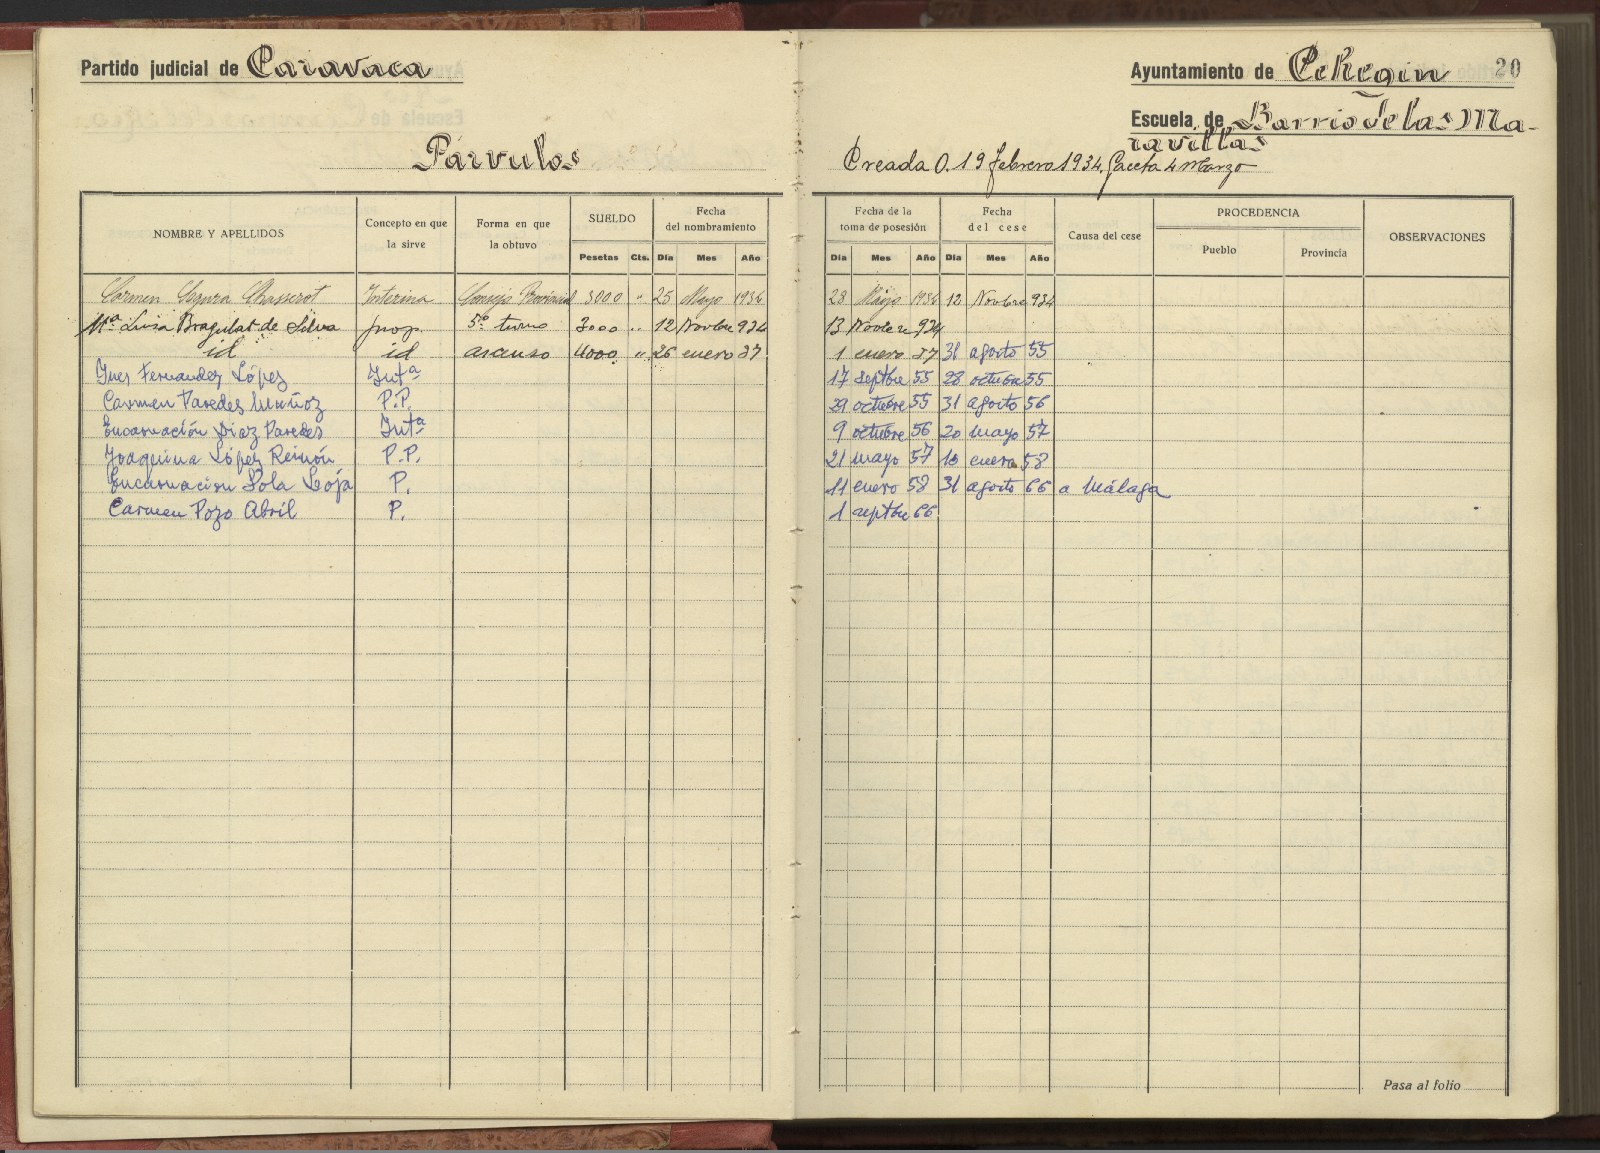 Partido judicial de Caravaca
Párvulos
NOMBRE Y APELLIDOS Concepto en que la sirve Forma en que la obtuvo SUELDO Fecha del nombramiento
Pesetas Cts. Dia Mes Año
Carmen Segura Chasserot Interina Consejo Provincial 3000 " 25 Mayo 1934
Mª Luisa Bragulat de Silva prop. 5º turno 3000 " 12 Novbre 934
id id ascenso 4000 " 26 enero 37
Ines Fernandez López Intª
Carmen Paredes Muñoz P.P.
Encarnación Diaz Paredes Intª
Joaquina López Reinón P.P.
Encarnacion Sola Loja P.
Carmen Pozo Abril P.
Ayuntamiento de Cehegin 20
Escuela de Barrio de las Ma-
ravillas
Creada O. 19 febrero 1934. Gaceta 4 Marzo
Fecha de la toma de posesión Fecha del cese Causa del cese PROCEDENCIA OBSERVACIONES
Dia Mes Año Dia Mes Año Pueblo Provincia
28 Mayo 1934 12 Novbre 934
13 Novbre 934
1 enero 37 31 agosto 55
17 septbre 55 28 octubre 55
29 octubre 55 31 agosto 56
9 octubre 56 20 mayo 57
21 mayo 57 10 enero 58
11 enero 58 31 agosto 66 a Málaga
1 septbre 66
Pasa al folio